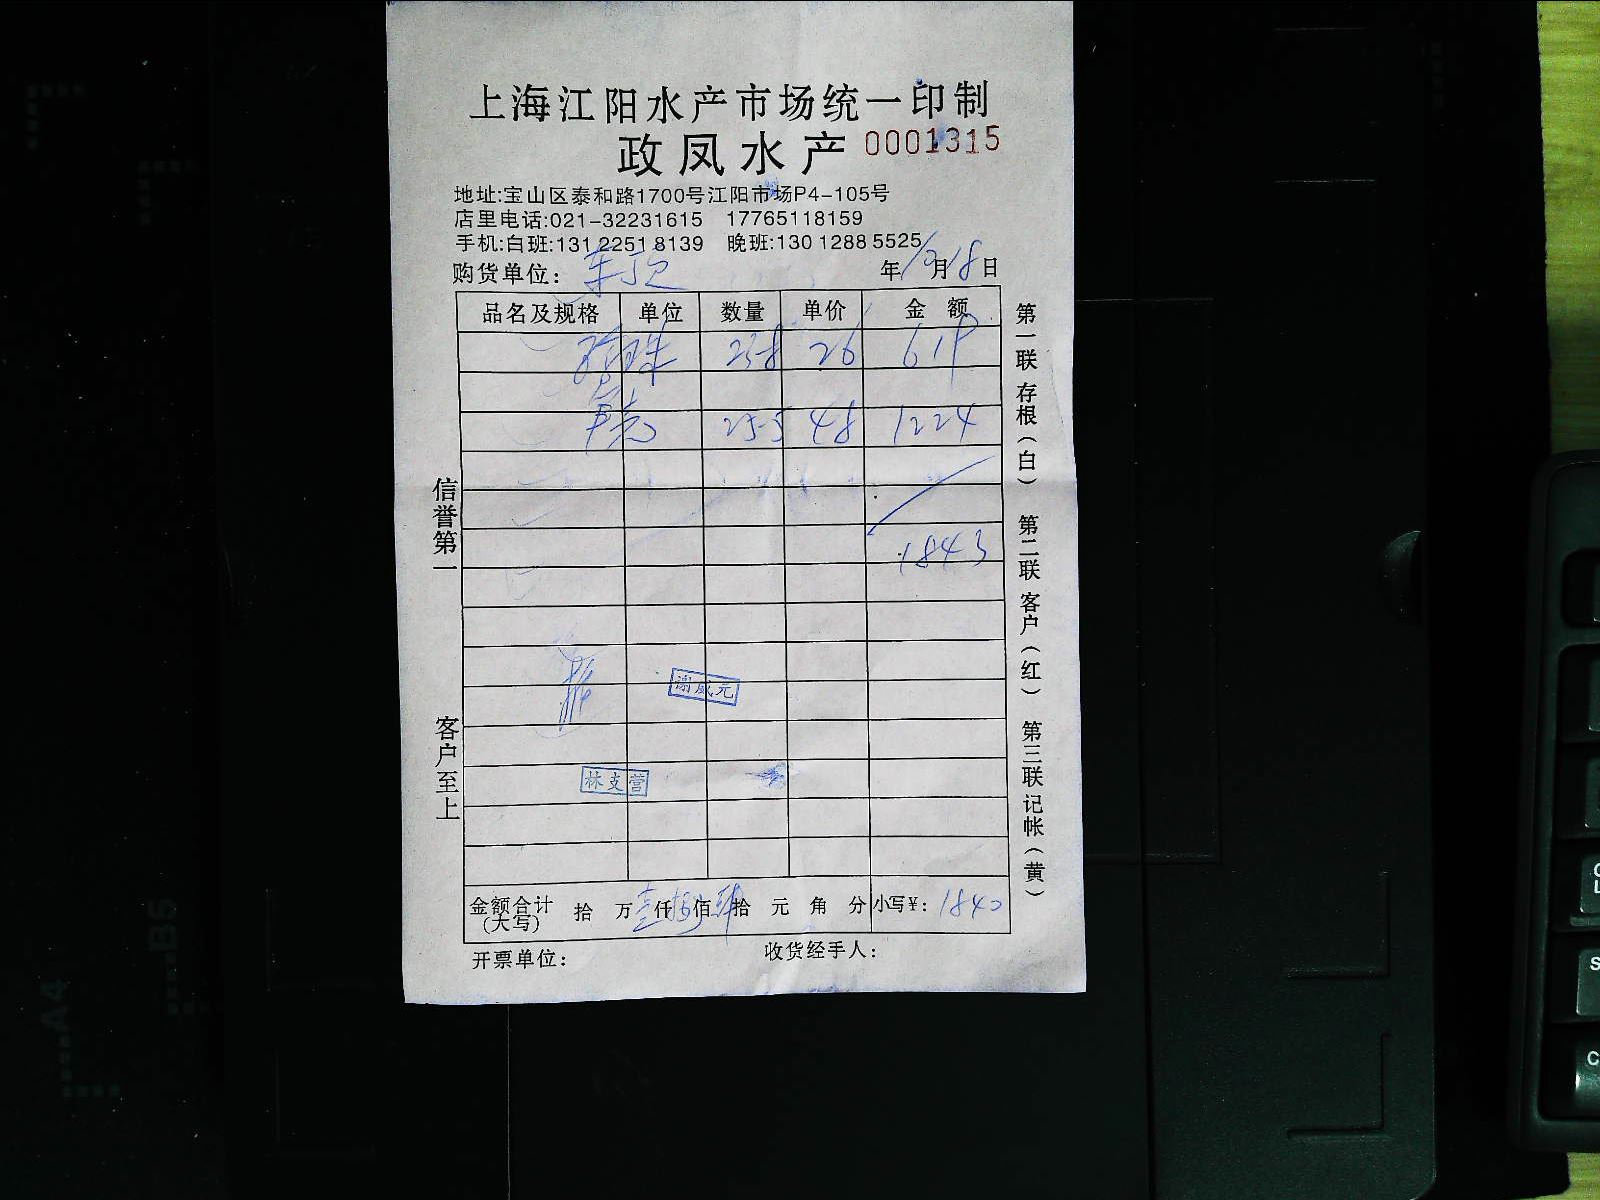 上海江阳水产市场统一印制
政凤水产 0001315
地址:宝山区泰和路1700号江阳市场P4-105号
店里电话:021-32231615 17765118159
手机:白班:131 2251 8139 晚班:130 1288 5525
购货单位: 年 月18日
品名及规格 单位 数量 单价 金额
珍珠 23-8 26 619
25-5 48 1224
1843
谢威元
林支营
金额合计(大写) 拾 万 壹仟 捌佰 肆拾 元 角 分 小写¥: 1840
开票单位: 收货经手人:
信誉第一
客户至上
第一联 存根(白) 第二联 客户(红) 第三联 记帐(黄)
A4
B5